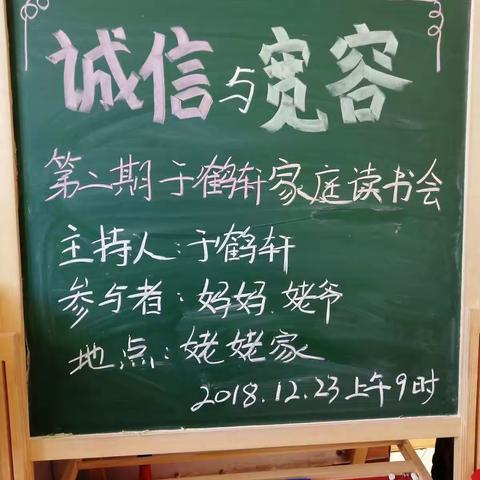 诚信与宽容
第二期于鹤轩家庭读书会
主持人:于鹤轩
参与者:妈妈.姥爷
地点:姥姥家
2018.12.23上午9时